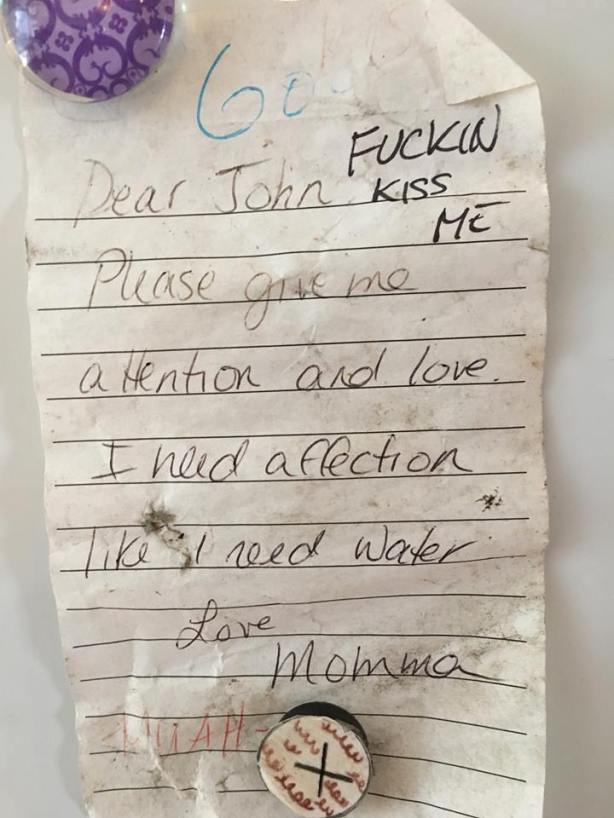 FUCKIN
Dear John KISS
ME
Please give me
attention and love.
I need affection
like I need water
Love
Momma
MUAH-